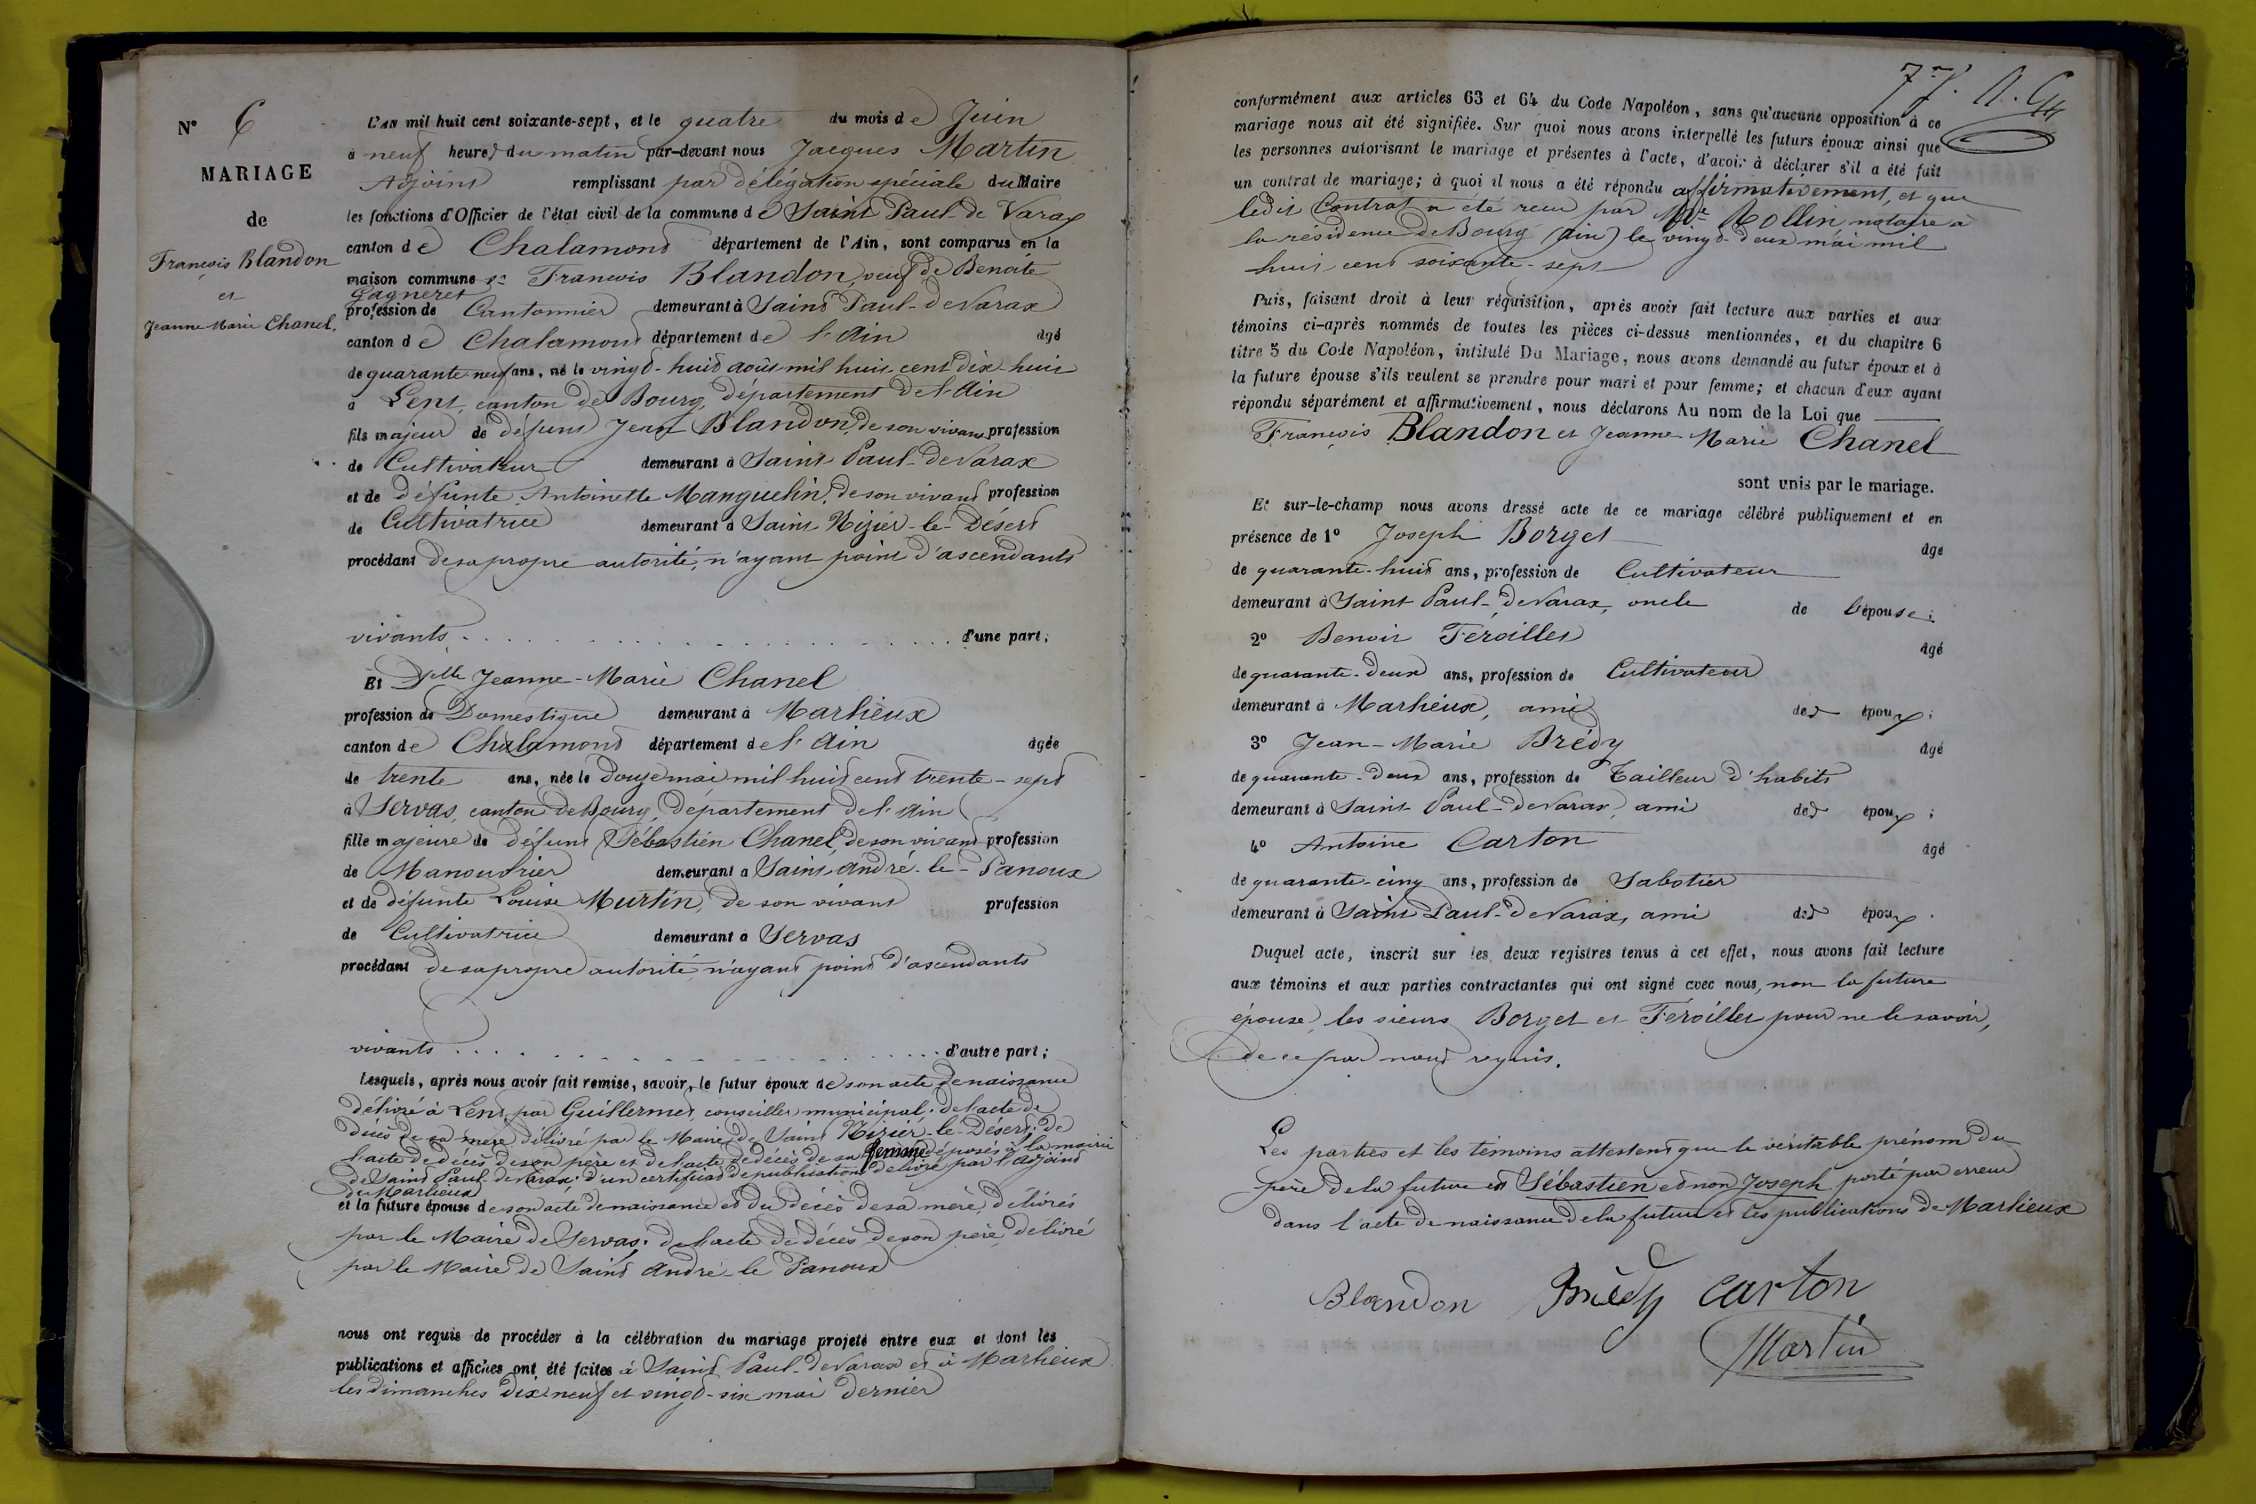 N° 6
MARIAGE
de
François Blandon
et
Jeanne Marie Chanel.
L'AN mil huit cent soixante-sept, et le quatre du mois de Juin
à neuf heures du matin par-devant nous Jacques Martin
Adjoint remplissant par délégation spéciale du Maire
les fonctions d'Officier de l'état civil de la commune de Saint Paul-de Varax
canton de Chalamont département de l'Ain, sont comparus en la
maison commune sr François Blandon, veuf de Benoîte
Gagneret
profession de Cantonnier demeurant à Saint Paul-de Varax
canton de Chalamont département de l'Ain âgé
de quarante neuf ans, né le vingt-huit août mil huit cent dix-huit
à Lent, canton de Bourg, département de l'Ain
fils majeur de défunt Jean Blandon, de son vivant profession
de Cultivateur demeurant à Saint Paul-de Varax
et de défunte Antoinette Manguelin, de son vivant profession
de Cultivatrice demeurant à Saint Nizier-le-Désert
procédant de sa propre autorité, n'ayant point d'ascendants
vivants d'une part;
Et Delle Jeanne-Marie Chanel
profession de Domestique demeurant à Marlieux
canton de Chalamont département de l'Ain âgée
de trente ans, née le douze mai mil huit cent trente-sept
à Servas, canton de Bourg, département de l'Ain
fille majeure de défunt Sébastien Chanel, de son vivant profession
de Manouvrier demeurant à Saint André-le-Panoux
et de défunte Louise Martin, de son vivant profession
de Cultivatrice demeurant à Servas
procédant de sa propre autorité, n'ayant point d'ascendants
vivants d'autre part;
Lesquels, après nous avoir fait remise, savoir, le futur époux de son acte de naissance
délivré à Lent par Guillermet, conseiller municipal; de l'acte de
décès de sa mère délivré par le Maire de Saint Nizier-le-Désert; de
l'acte de décès de son père et de l'acte de décès de sa femme déposés à la mairie
de Saint Paul-de Varax; d'un certificat de publication délivré par l'adjoint
de Marlieux
et la future épouse de son acte de naissance et du décès de sa mère, délivrés
par le Maire de Servas; de l'acte de décès de son père, délivré
par le Maire de Saint André-le Panoux
nous ont requis de procéder à la célébration du mariage projeté entre eux et dont les
publications et affiches ont été faites à Saint Paul-de Varax et à Marlieux
les dimanches dix-neuf et vingt-six mai dernier
77.
conformément aux articles 63 et 64 du Code Napoléon, sans qu'aucune opposition à ce
mariage nous ait été signifiée. Sur quoi nous avons interpellé les futurs époux ainsi que
les personnes autorisant le mariage et présentes à l'acte, d'avoir à déclarer s'il a été fait
un contrat de mariage; à quoi il nous a été répondu affirmativement, et que
ledit Contrat a été reçu par Me Rollin notaire à
la résidence de Bourg (Ain) le vingt-deux mai mil
huit cent soixante-sept
Puis, faisant droit à leur réquisition, après avoir fait lecture aux parties et aux
témoins ci-après nommés de toutes les pièces ci-dessus mentionnées, et du chapitre 6
titre 5 du Code Napoléon, intitulé Du Mariage, nous avons demandé au futur époux et à
la future épouse s'ils veulent se prendre pour mari et pour femme; et chacun d'eux ayant
répondu séparément et affirmativement, nous déclarons Au nom de la Loi que
François Blandon et Jeanne-Marie Chanel
sont unis par le mariage.
Et sur-le-champ nous avons dressé acte de ce mariage célébré publiquement et en
présence de 1° Joseph Borget âgé
de quarante-huit ans, profession de Cultivateur
demeurant à Saint Paul-de Varax, oncle de l'épouse;
2° Benoit Féroillet âgé
de quarante-deux ans, profession de Cultivateur
demeurant à Marlieux, ami des époux;
3° Jean-Marie Brédy âgé
de quarante-deux ans, profession de Tailleur d'habits
demeurant à Saint Paul-de Varax, ami des époux;
4° Antoine Carton âgé
de quarante-cinq ans, profession de Sabotier
demeurant à Saint Paul-de Varax, ami des époux.
Duquel acte, inscrit sur les deux registres tenus à cet effet, nous avons fait lecture
aux témoins et aux parties contractantes qui ont signé avec nous, non la future
épouse, les sieurs Borget et Féroillet pour ne le savoir,
de ce par nous requis.
Les parties et les témoins attestent que le véritable prénom du
père de la future est Sébastien et non Joseph porté par erreur
dans l'acte de naissance de la future et les publications de Marlieux
Blandon Brédy Carton
Martin